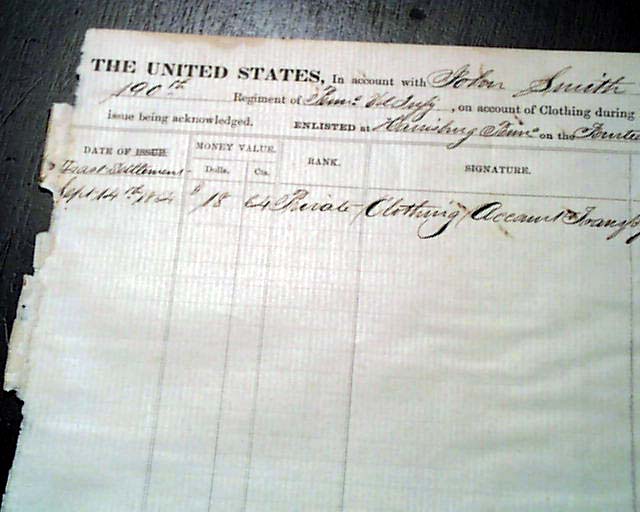 THE UNITED STATES, In account with John Smith
190th Regiment of Penna Vol Infy, on account of Clothing during
issue being acknowledged. ENLISTED at Harrisburg Penna on the
DATE OF ISSUE. MONEY VALUE. Dolls. Cts. RANK. SIGNATURE.
Last Settlement
Sept 14th 1864 " 18 64 Private Clothing Account